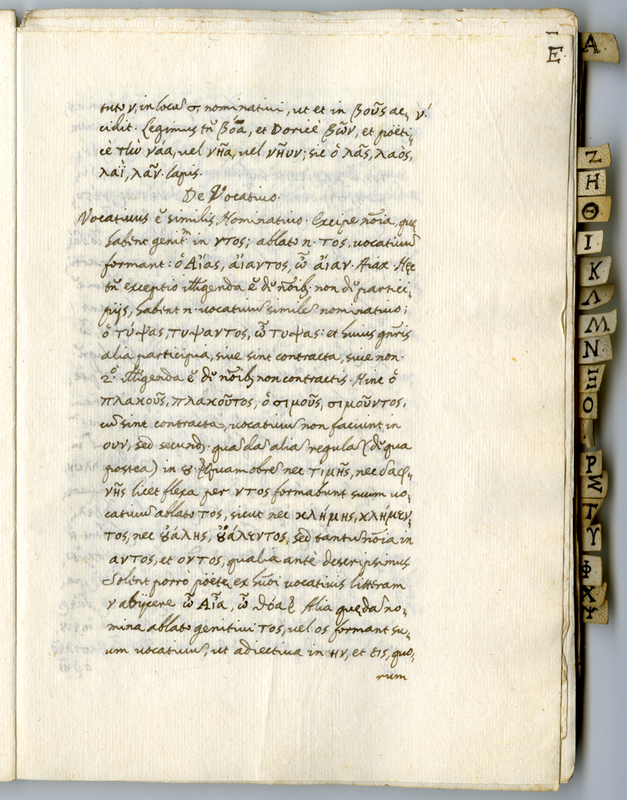 tuto ν, in locũ σ, nominatiui, ut et in βοῦς ac,
cidit. Legimus tñ βόα, et Doricè βῶν, et poëti,
cè τὴν νάα, uel νῆα, uel νῆυν; sic ὁ λᾶς, λαὸς,
λαΐ, λᾶν. lapis.
De Vocatiuo.
Vocatiuus ẽ similis Nominatiuo. Excipe nõia, quę
habent genit. in ντος; ablato n. τος, uocatiuũ
formant: ὁ Αἴας, αἴαντος, ὦ αἶαν. Aiax. Hęc
tñ exceptio ĩtelligenda ẽ de nõib; non de partici,
pijs, habent n. uocatiuũ similẽ nominatiuo;
ὁ τύψας, τύψαντος, ὦ τύψας: et huius gñris
alia participia, siue sint contracta, siue non.
2º. ĩtelligenda ẽ de nõib; non contractis. Hinc ὁ
πλακοῦς, πλακοῦτος, ὁ σιμοῦς, σιμοῦντος,
cũ sint contracta, uocatiuũ non faciunt in
ουν, sed secund. quãdã aliã regulã (de qua
postea) in
νῆς licet flexa per ντος formabunt suum uo,
catiuũ ablato τος, sicut nec κλήμης, κλήμεν,
τος, nec ȣάλης, ȣάλεντος, sed tantũ nõia in
αντος, et οντος, qualia antè descripsimus
Solent porrò poëtę ex huõi uocatiuis litteram
ν abijcere ὦ Αἶα, ὦ θόα. Alia quędã no,
mina ablato genitiui τος, uel ος formant su,
um uocatiuũ, ut adiectiua in ην, et εις, quo,
rum
E
Α
Ζ
Η
Θ
Ι
Κ
Λ
Μ
Ν
Ξ
Ο
Ρ
Σ
Τ
Υ
Φ
Χ
Ψ